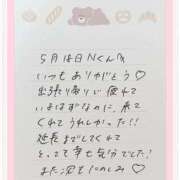 5月18日Nくんへ
いつもありがとう♡
出張り帰りで疲れて
いまはずなのに、来て
くれてうれしかった!!
延長までしてくれて
とっても幸せ気分でした!
また沼たのしみ♡